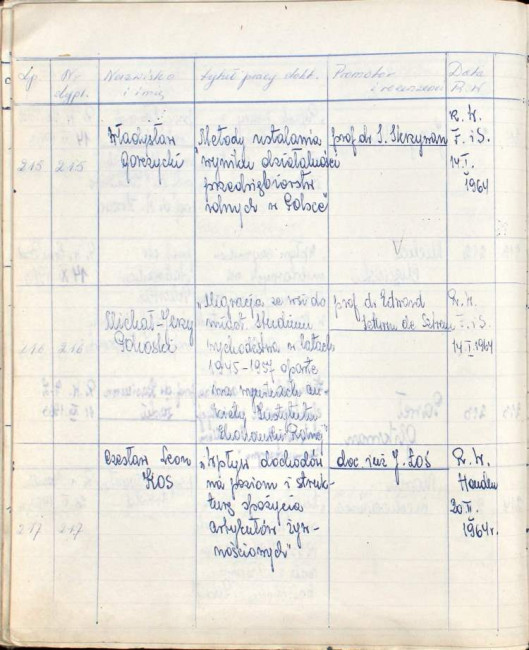 Lp. Nr dypl. Nazwisko i imię tytuł pracy dokt. Promotor i recenzenci Data R.W.
215 215
Władysław
Gorzycki
"Metody ustalania
wyniku działalności
przedsiębiorstw
rolnych w Polsce"
prof. dr S.
R. W.
F. i S.
14.I.
1964
216 216
Michał-Jerzy
"Migracja ze wsi do
miast. Studium
wychodźstwa w latach
1945-1957 oparte
na wynikach
ankiety Instytutu
Ekonomiki Rolnej"
prof. dr Edward
R. W.
F. i S.
14.I.1964
217 217
Czesław Leon
Kos
"Wpływ dochodów
na poziom i struk-
turę spożycia
artykułów żyw-
nościowych"
doc. inż. J. Łoś
R. W.
Handlu
1964r.